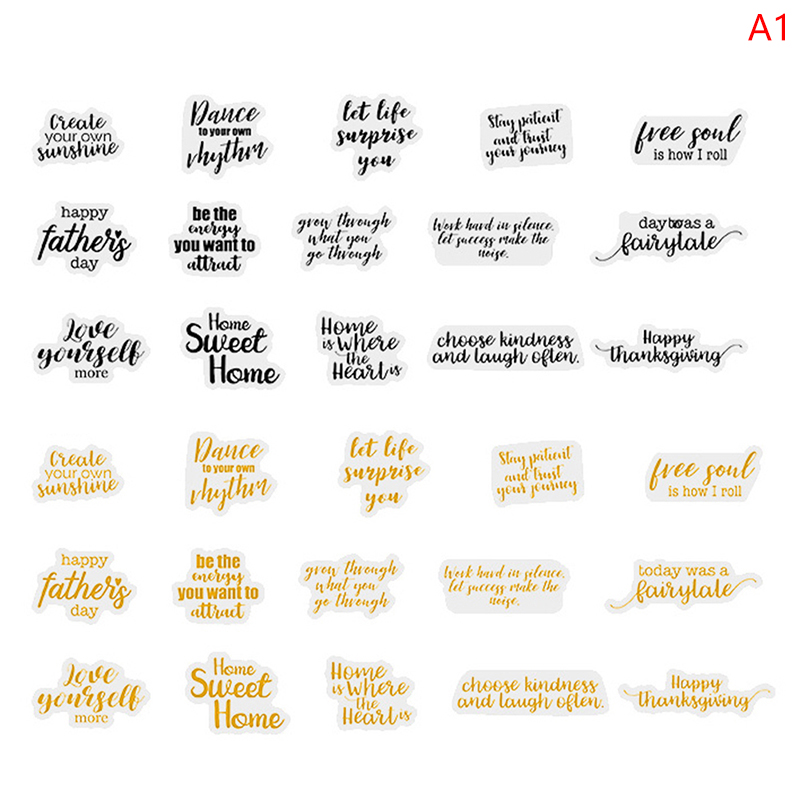 A1
Create
your own
sunshine
Dance
to your own
rhythm
let life
surprise
you
Stay patient
and trust
your journey
free soul
is how I roll
happy
father's
day
be the
energy
you want to
attract
grow through
what you
go through
Work hard in silence,
let success make the
noise.
day to was a
fairytale
Love
yourself
more
Home
Sweet
Home
Home
is Where
the
Heart is
choose kindness
and laugh often.
Happy
thanksgiving
Create
your own
sunshine
Dance
to your own
rhythm
let life
surprise
you
Stay patient
and trust
your journey
free soul
is how I roll
happy
father's
day
be the
energy
you want to
attract
grow through
what you
go through
Work hard in silence,
let success make the
noise.
today was a
fairytale
Love
yourself
more
Home
Sweet
Home
Home
is Where
the
Heart is
choose kindness
and laugh often.
Happy
thanksgiving